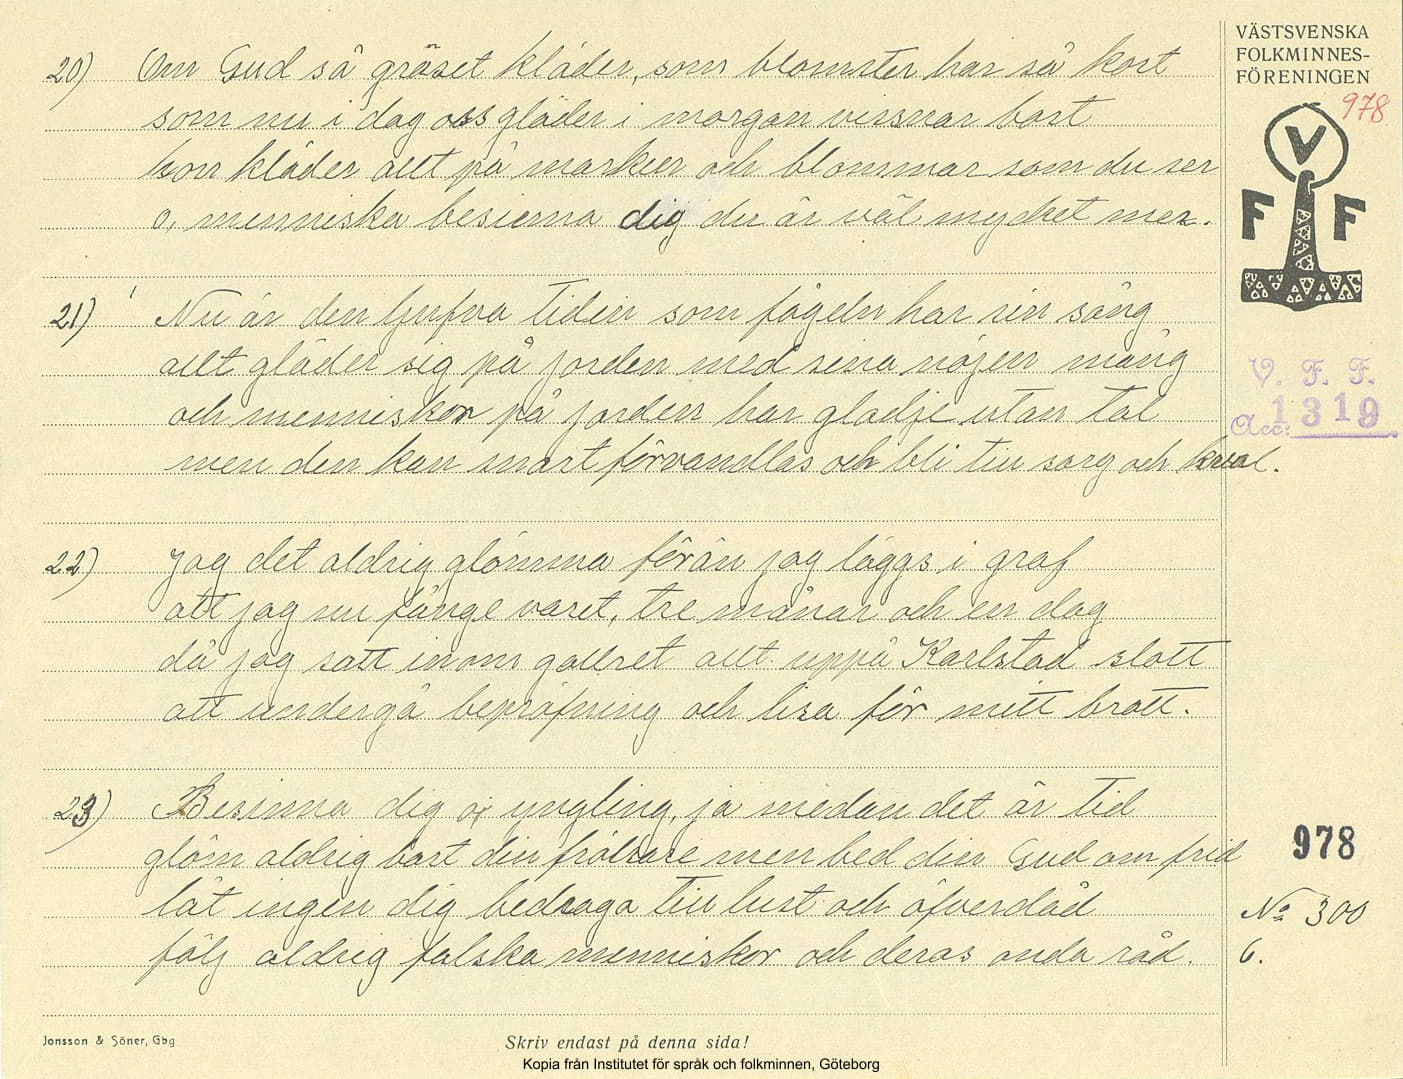 20) Om Gud så gräset kläder, som blomster har så kort
som nu i dag oss gläder i morgan vissnar bort
hon kläder allt på marken och blommar som du ser
o, menniska besinna dig du är väl mycket mer.
21) Nu är den ljufva tiden som fågeln har sin sång
allt gläder sig på jorden med sina nöjen mång
och menniskor på jorden har glädje utan tal
men den kan snart förvandlas och bli till sorg och kval.
22) Jag det aldrig glömma förän jag läggs i graf
att jag nu fånge varet, tre månar och en dag
då jag satt inom gallret allt uppå Karlstad slott
att undergå bepröfning och lisa för mitt brott.
23) Besinna dig o, yngling, ja medan det är tid
glöm aldrig bort din frälsare men bed din Gud om frid
låt ingen dig bedraga till lust och öfverdåd
följ aldrig falska menniskor och deras onda råd.
VÄSTSVENSKA
FOLKMINNES-
FÖRENINGEN
978
V
F F
V. F. F.
Acc: 1319
978
No 300
6.
Jonsson & Söner, Gbg
Skriv endast på denna sida!
Kopia från Institutet för språk och folkminnen, Göteborg